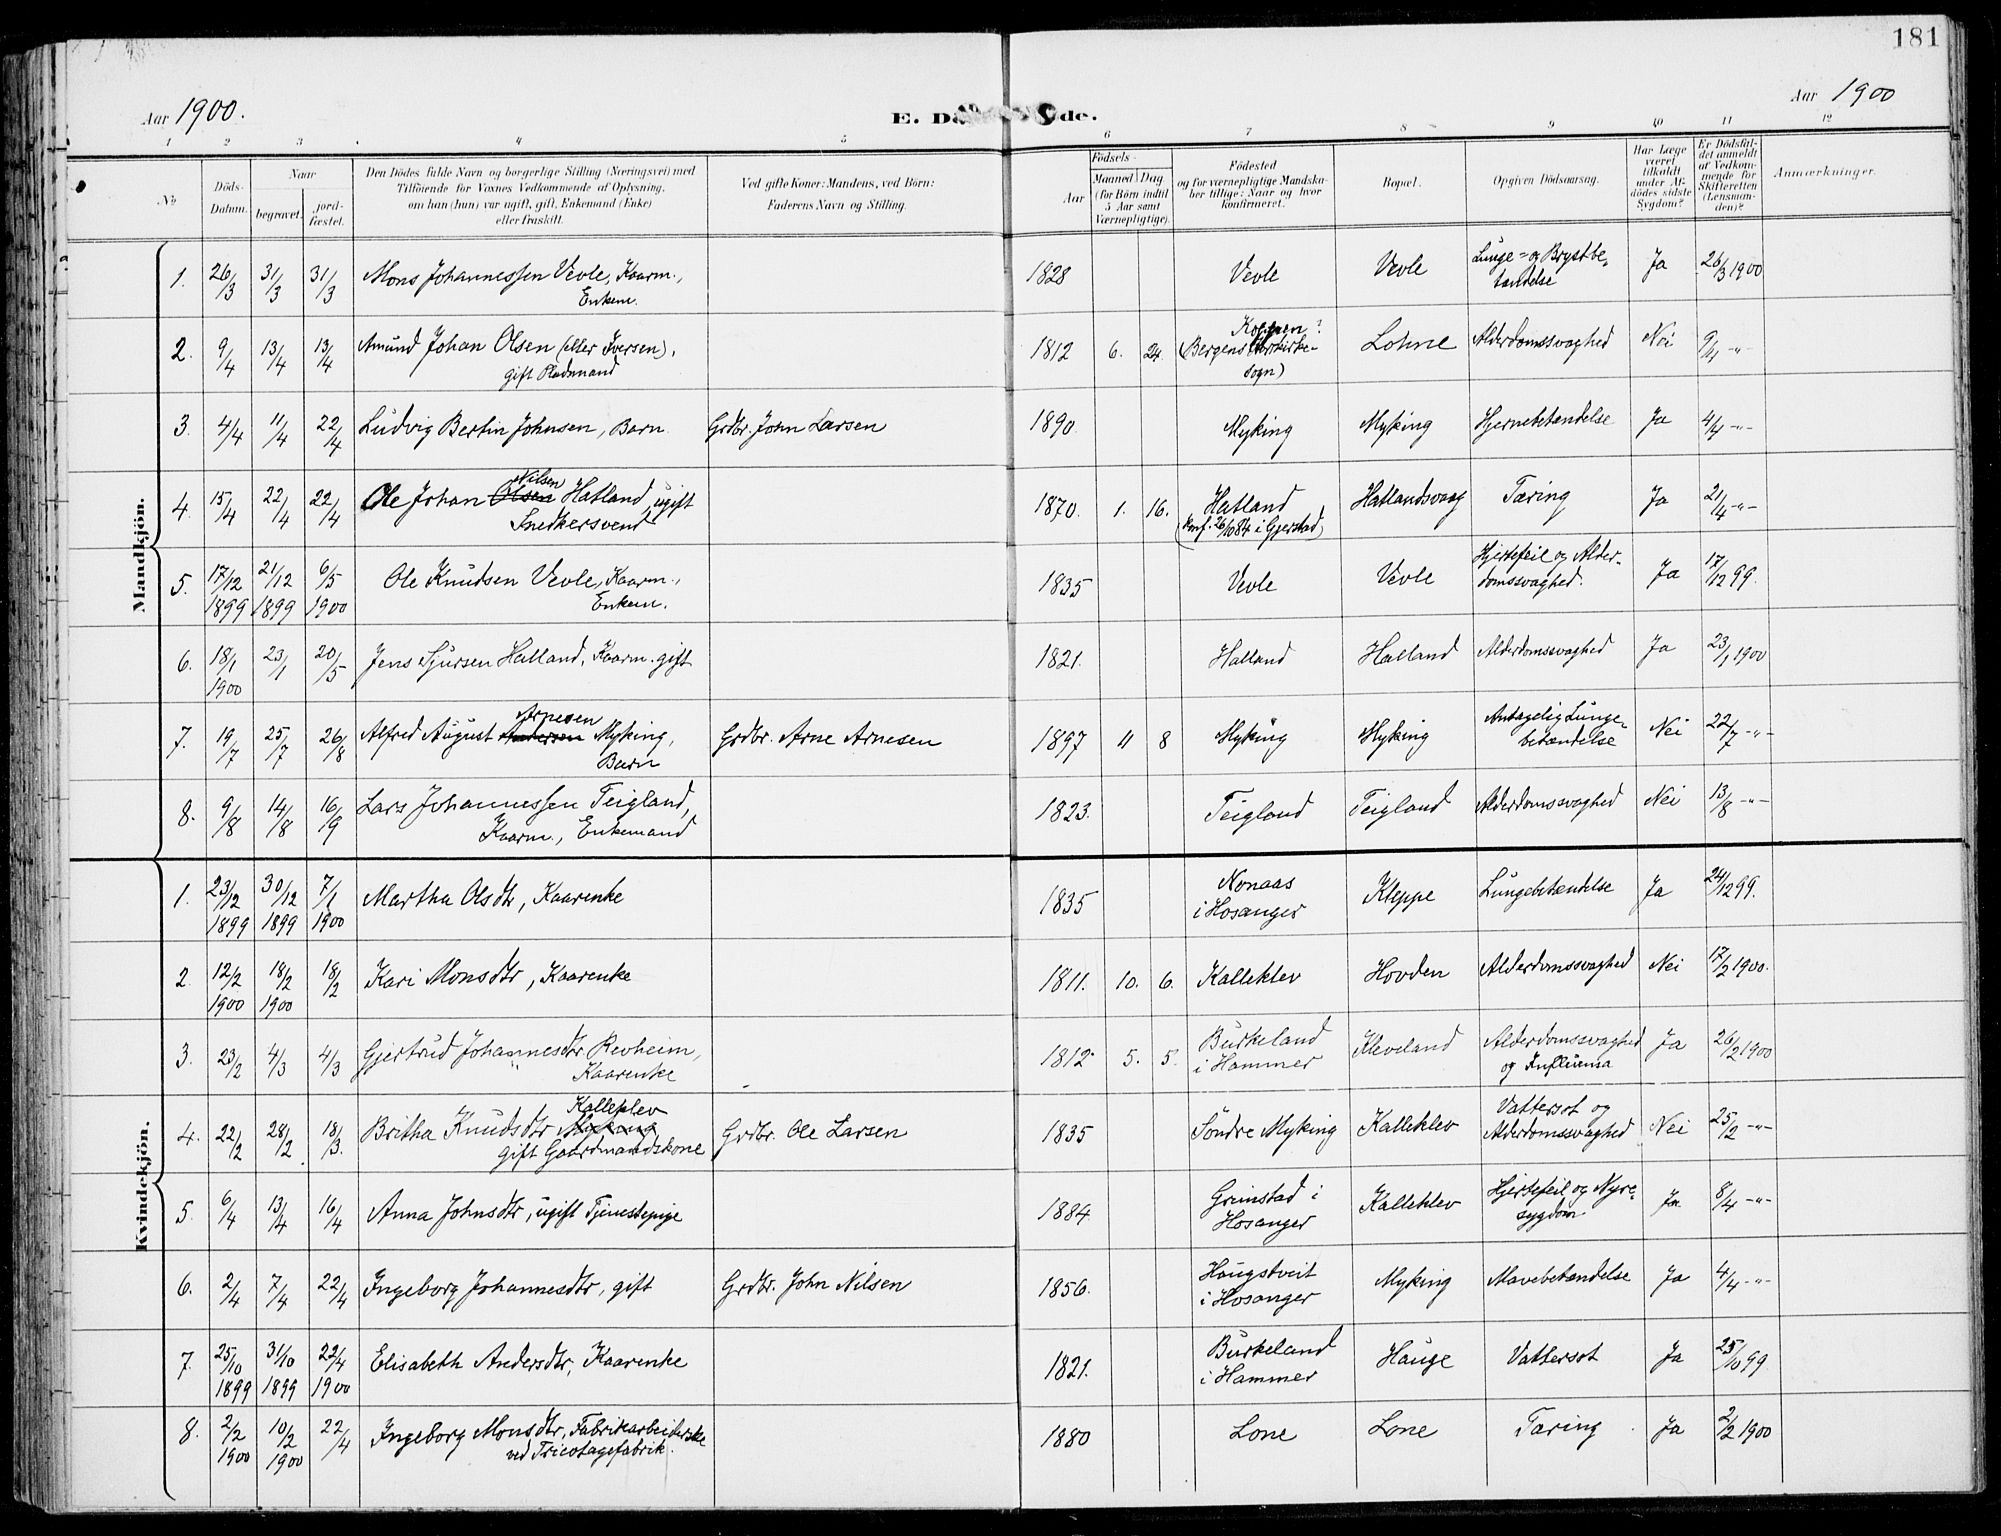 181
Aar 1900.
E. Dö de.
Aar 1900
1 2 3 4 5 6 7 8 9 10 11 12
No
Döds-
Datum.
Naar
begravet.
jord-
fæstet.
Den Dödes fulde Navn og borgerlige Stilling (Næringsvei) med
Tilföiende for Voxnes Vedkommende af Oplysning,
om han (hun) var ugift, gift, Enkemand (Enke)
eller fraskilt.
Ved gifte Koner: Mandens, ved Börn:
Faderens Navn og Stilling.
Födsels-
Aar
Maaned Dag
(for Börn indtil
5 Aar samt
Værnepligtige).
Födested
og for værnepligtige Mandska-
ber tillige: Naar og hvor
konfirmeret.
Bopæl.
Opgiven Dödsaarsag.
Har Læge
været
tilkaldt
under Af-
dödes sidste
Sygdom?
Er Dödsfal-
det anmeldt
af Vedkom-
mende for
Skifteretten
(Lensman-
den)?
Anmærkninger.
Mandkjön.
1. 26/3 31/3 31/3 Mons Johannessen Vevle, Kaarm., Enkem. 1828 Vevle Vevle Lunge- og Brystbe-
tændelse Ja 26/3 1900
2. 9/4 13/4 13/4 Amund Johan Olsen (eller Iversen),
gift Pladsmand 1812 6. 24. (Bergens
sogn) Lohne Alderdomssvaghed Nei
3. 4/4 11/4 22/4 Ludvig Bertin Johnsen, Barn Grdbr. John Larsen 1890 Myking Myking Hjernebetændelse Ja 4/4 -"-
4. 15/4 22/4 22/4 Ole Johan Olsen Nilsen Hatland, ugift
Snedkersvend 1870. 1. 16. Hatland
(konf. 26/10 84 i Gjerstad) Hatlandsvaag Tæring Ja 21/4 -"-
5. 17/12 1899 21/12 1899 6/5 1900 Ole Knudsen Vevle, Kaarm.,
Enkem. 1835 Vevle Vevle Hjertefeil og Alder-
domssvaghed. Ja 17/12 99.
6. 18/1 1900 23/1 20/5 Jens Sjursen Hatland, Kaarm. gift 1821. Hatland Hatland Alderdomssvaghed Ja 23/1 1900
7. 19/7 25/7 26/8 Alfred August Andersen Arnesen Myking,
Barn Grdbr. Arne Arnesen 1897 11 8 Myking Myking Antagelig Lunge-
betændelse Nei 22/7 -"-
8. 9/8 14/8 16/9 Lars Johannessen Teigland,
Kaarm., Enkemand 1823. Teigland Teigland Alderdomssvaghed Nei 13/8 -"-
Kvindekjön.
1. 23/12 1899 30/12 1899 7/1 1900 Martha Olsdtr, Kaarenke 1835 Nonaas
i Hosanger Kleppe Lungebetændelse Ja 24/12 99.
2. 12/2 1900 18/2 1900 18/2 Kari Monsdtr, Kaarenke 1811. 10. 6. Kalleklev Hovden Alderdomssvaghed Nei 17/2 1900.
3. 23/2 4/3 4/3 Gjertrud Johannesdtr. Revheim,
Kaarenke 1812 5. 5. Burkeland
i Hammer Kleveland Alderdomssvaghed
og Influensa Ja 26/2 1900
4. 22/2 28/2 18/3. Britha Knudsdtr Myking Kalleklev
gift Gaardmandskone Grdbr. Ole Larsen 1835 Söndre Myking Kalleklev Vattersot og
Alderdomssvaghed Nei 25/2 -"-
5. 6/4 13/4 16/4 Anna Johnsdtr, ugift Tjenestepige 1884. Grimstad i
Hosanger Kalleklev Hjertefeil og Nyre-
sygdom Ja 8/4 -"-
6. 2/4 7/4 22/4 Ingeborg Johannesdtr, gift Grdbr. John Nilsen 1856. Haugstveit
i Hosanger Myking Mavebetændelse Ja 4/4 -"-
7. 25/10 1899 31/10 1899 22/4 1900 Elisabeth Andersdtr, Kaarenke 1821. Burkeland
i Hammer Hauge Vattersot Ja 25/10 99
8. 2/2 1900 10/2 1900 22/4 Ingeborg Monsdtr, Fabrikarbeiderske
ved Tricotagefabrik. 1880 Lone Lone Tæring Ja 2/2 1900